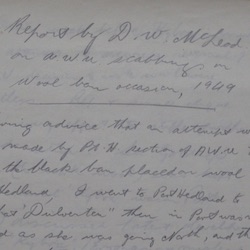 Report by D. W. McLeod
on A.W.U. scabbing on
Wool ban occasion, 1949
ning advice that an attempt w
made by Pt. H. section of A.W.U. t
the black ban placed on wool
Hedland, I went to Port Hedland to
"Dulverton" then in Port was
d as she was going North, and th